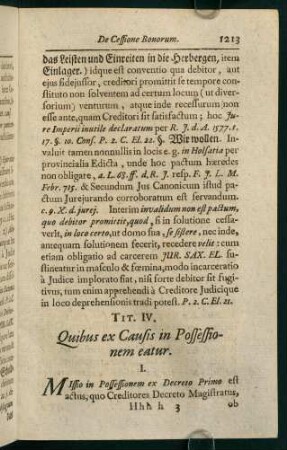 De Cessione Bonorum. 1213
das Leisten und Einreiten in die Herbergen, item
Einlager.) idque est conventio qua debitor, aut
ejus fidejussor, creditori promittit se tempore con-
stituto non solventem ad certum locum (ut di-
versorium) venturum, atque inde recessurum non
esse ante, quam Creditori sit satisfactum; hoc Ju-
re Imperii inutile declaratum per R. J. d. A. 1577. t.
17. §. 10. Conf. P. 2. C. El. 22. §. Wir wollen. In-
valuit tamen nonnullis in locis e. g. in Holsatia per
provincialia Edicta, unde hoc pactum hæredes
non obligate, a. L. 63. ff. d. R. J. resp. F. J. L. M.
Febr. 715. & Secundum Jus Canonicum istud pa-
ctum Jurejurando corroboratum est servandum.
c. 9. X. d. jurej. Interim invalidum non est pactum,
quo debitor promittit, quod, si in solutione cessa-
verit, in loco certo, ut domo sua, se sistere, nec inde,
antequam solutionem fecerit, recedere velit: cum
etiam obligatio ad carcerem JUR. SAX. EL. su-
stineatur in masculo & fœmina, modo incarceratio
à Judice implorato fiat, nisi forte debitor sit fugi-
tivus, tum enim apprehendi à Creditore Judicique
in loco deprehensionis tradi potest. P. 2. C. El. 22.
TIT. IV.
Quibus ex Causis in Possessio-
nem eatur.
I.
MIssio in Possessionem ex Decreto Primo est
actus, quo Creditores Decreto Magistratus,
Hhh h 3 ob